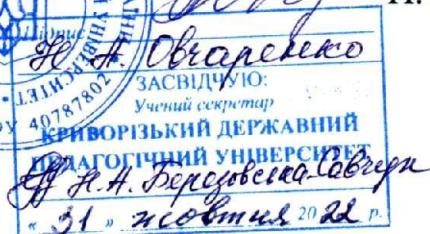 Підпис
Н. А. Овчаренко
ЗАСВІДЧУЮ:
Учений секретар
КРИВОРІЗЬКИЙ ДЕРЖАВНИЙ
ПЕДАГОГІЧНИЙ УНІВЕРСИТЕТ
Н. А. Березовська-Савчук
« 31 » жовтня 2022 р.
40787802